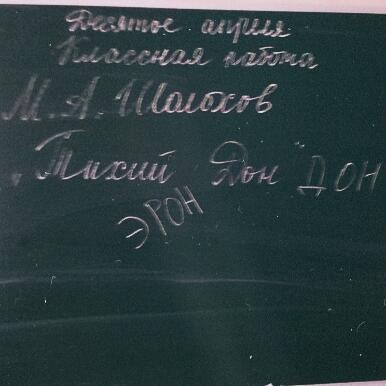 Десятое апреля
Классная работа
М. А. Шолохов
„Тихий Дон" ДОН
ЭРОН